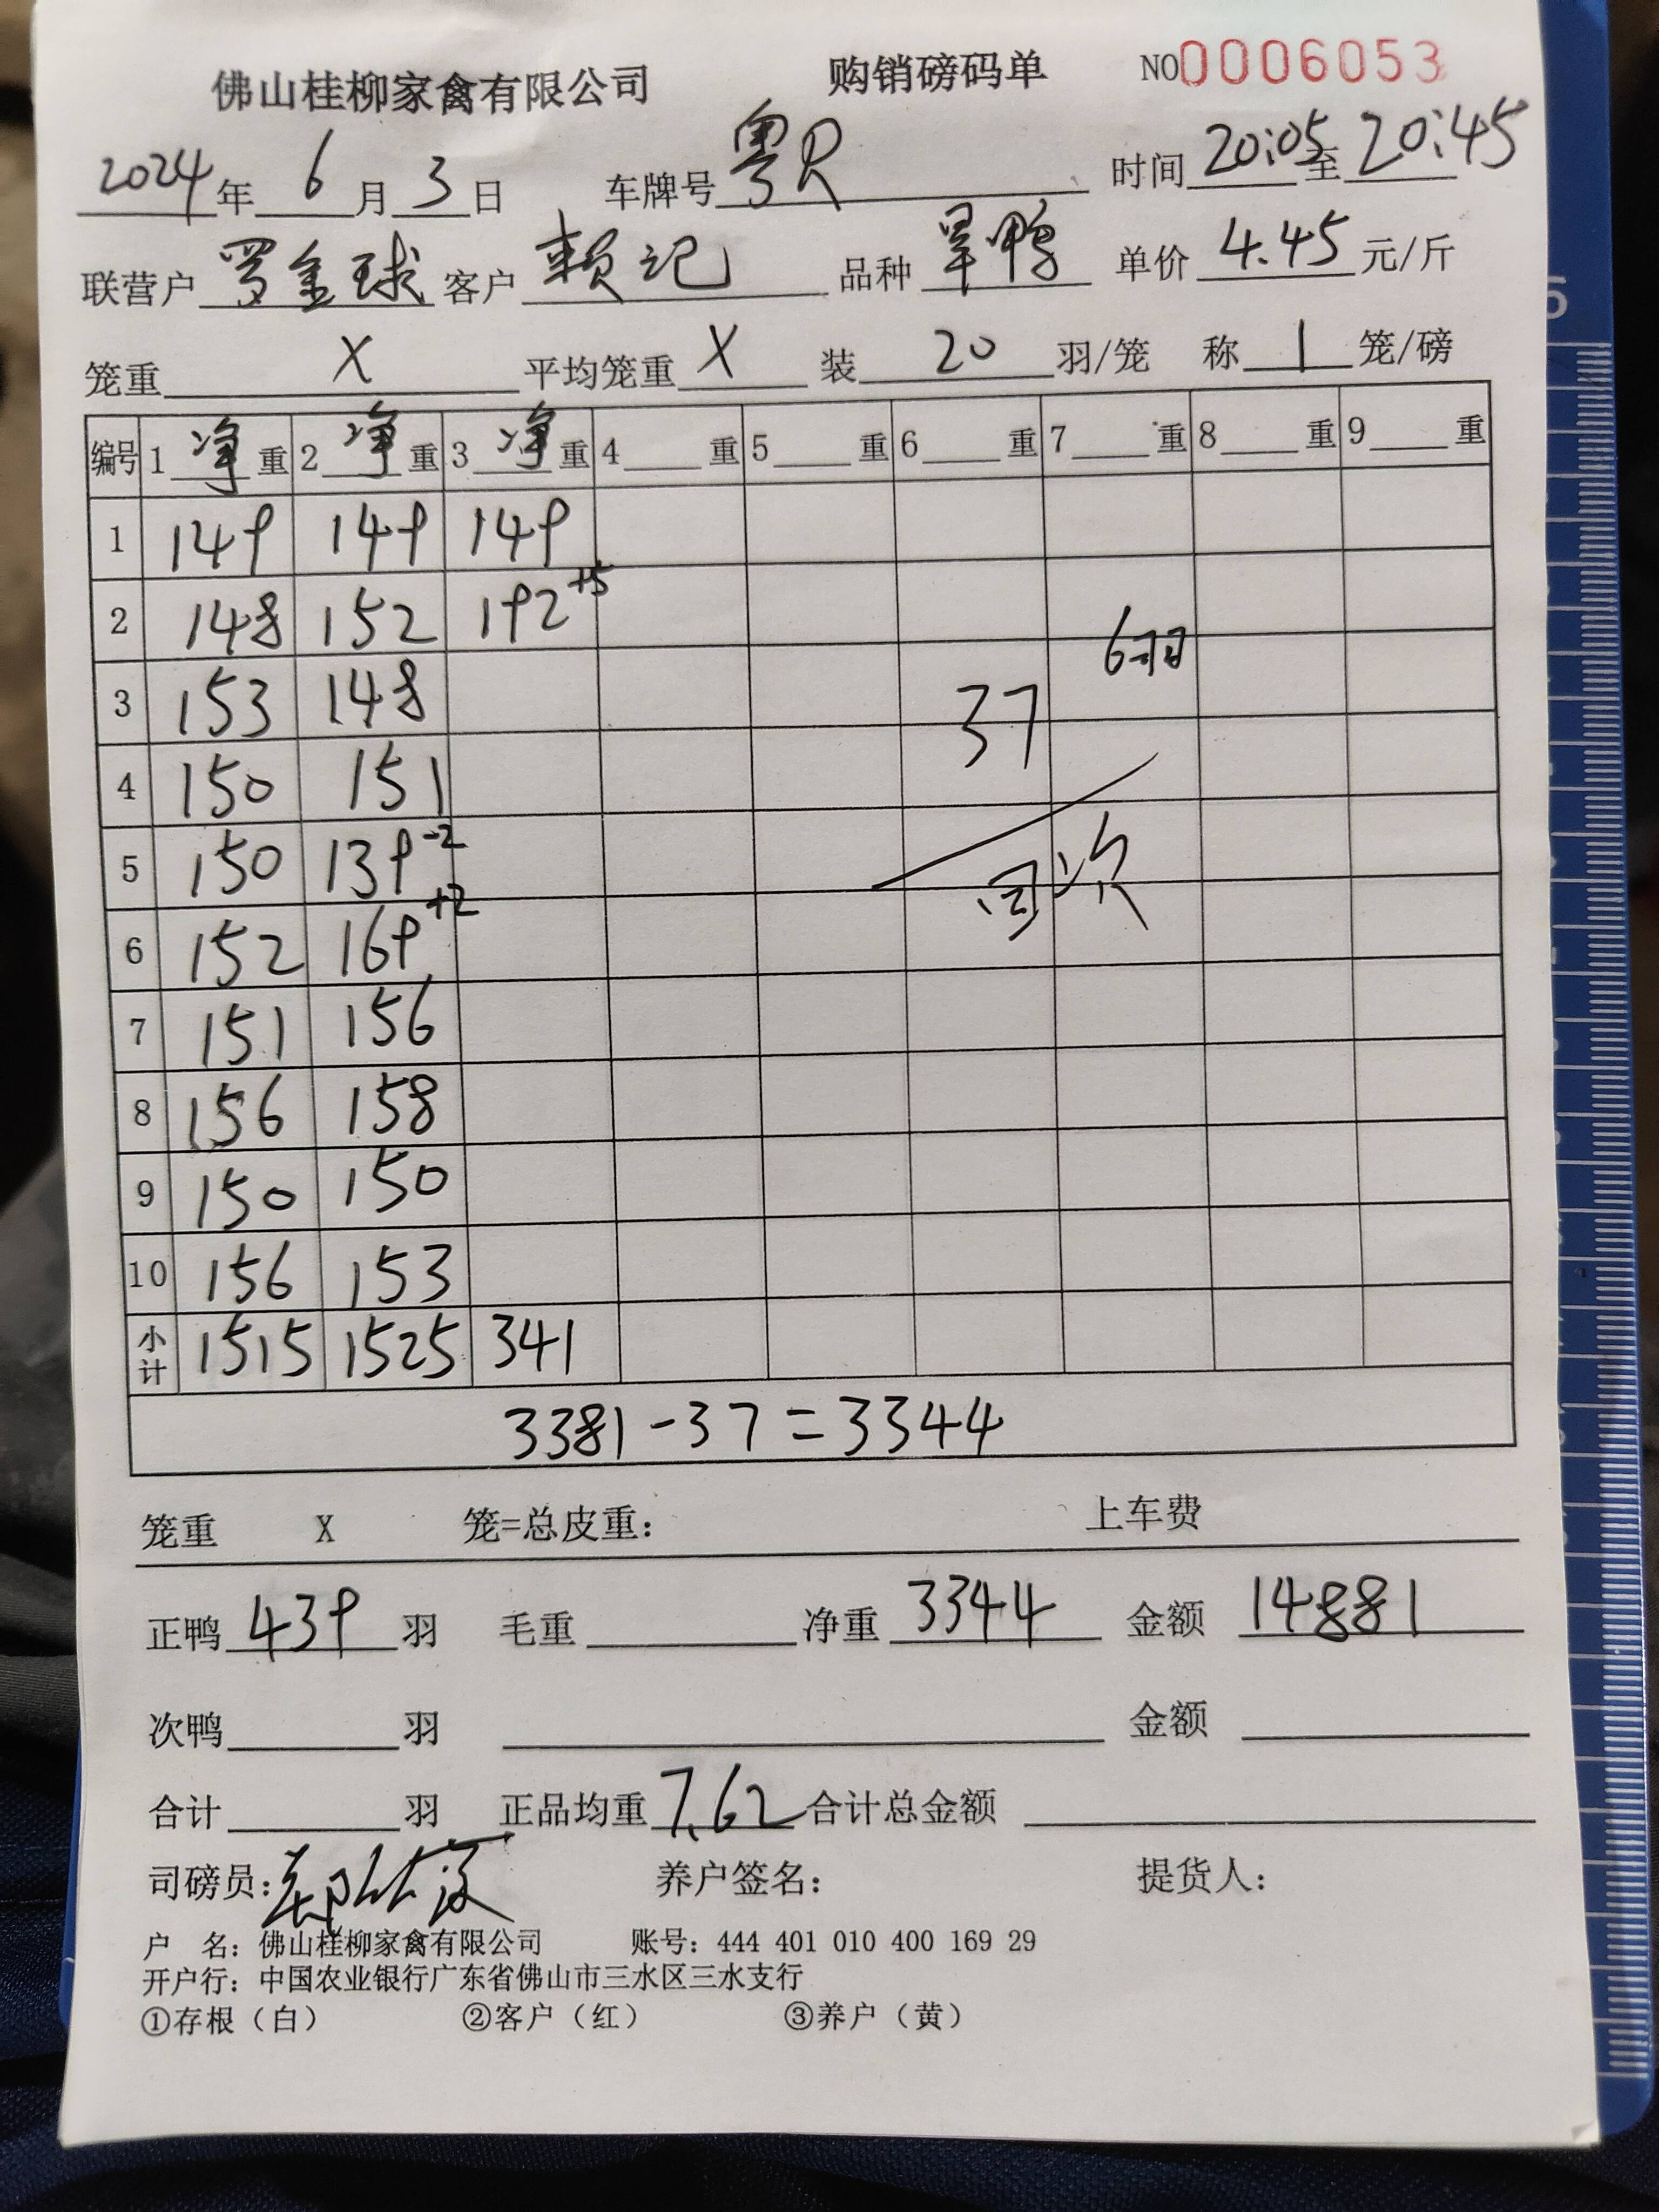 佛山桂柳家禽有限公司 购销磅码单 NO0006053
2024年6月3日 车牌号粤R 时间20:05至20:45
联营户罗金球 客户赖记 品种旱鸭 单价4.45元/斤
笼重X 平均笼重X 装20羽/笼 称1笼/磅
编号 1净重 2净重 3净重 4重 5重 6重 7重 8重 9重
1 149 149 149
2 148 152 192+5
6羽
3 153 148
37
4 150 151
5 150 139-2
回次
6 152 169+2
7 151 156
8 156 158
9 150 150
10 156 153
小计 1515 1525 341
3381-37=3344
笼重 X 笼=总皮重: 上车费
正鸭439羽 毛重 净重3344 金额14881
次鸭 羽 金额
合计 羽 正品均重7.62 合计总金额
司磅员: 养户签名: 提货人:
户 名: 佛山桂柳家禽有限公司 账号: 444 401 010 400 169 29
开户行: 中国农业银行广东省佛山市三水区三水支行
①存根（白） ②客户（红） ③养户（黄）